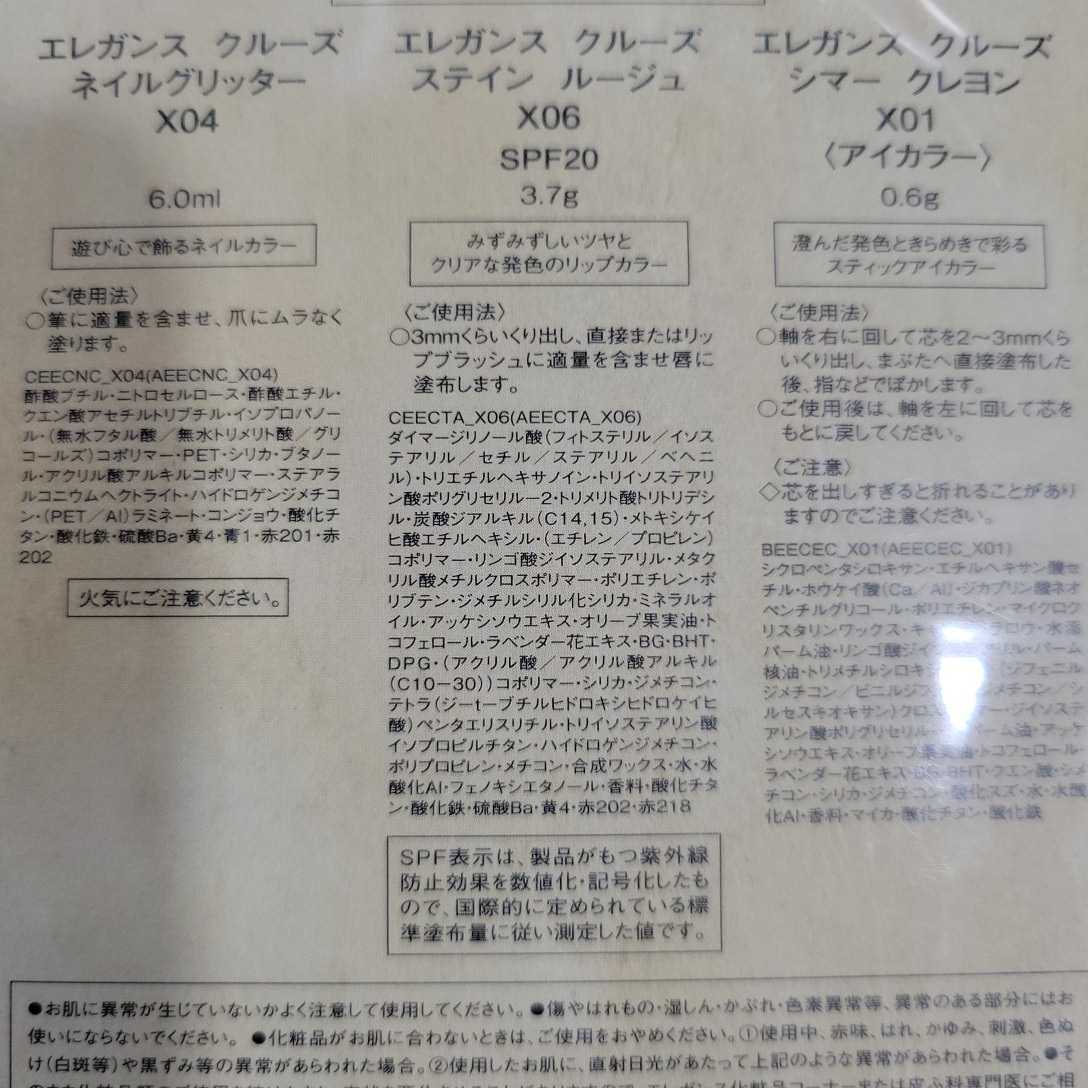 エレガンス クルーズ
ネイルグリッター
X04
6.0ml
遊び心で飾るネイルカラー
〈ご使用法〉
○筆に適量を含ませ、爪にムラなく
塗ります。
CEECNC_X04(AEECNC_X04)
酢酸ブチル・ニトロセルロース・酢酸エチル・
クエン酸アセチルトリブチル・イソプロパノー
ル・(無水フタル酸／無水トリメリト酸／グリ
コールズ)コポリマー・PET・シリカ・ブタノー
ル・アクリル酸アルキルコポリマー・ステアラ
ルコニウムヘクトライト・ハイドロゲンジメチコ
ン・(PET／Al)ラミネート・コンジョウ・酸化チ
タン・酸化鉄・硫酸Ba・黄4・青1・赤201・赤
202
火気にご注意ください。
エレガンス クルーズ
ステイン ルージュ
X06
SPF20
3.7g
みずみずしいツヤと
クリアな発色のリップカラー
〈ご使用法〉
○3mmくらいくり出し、直接またはリッ
プブラッシュに適量を含ませ唇に
塗布します。
CEECTA_X06(AEECTA_X06)
ダイマージリノール酸(フィトステリル／イソス
テアリル／セチル／ステアリル／ベヘニ
ル)・トリエチルヘキサノイン・トリイソステアリ
ン酸ポリグリセリル－2・トリメリト酸トリトリデシ
ル・炭酸ジアルキル(C14,15)・メトキシケイ
ヒ酸エチルヘキシル・(エチレン／プロピレン)
コポリマー・リンゴ酸ジイソステアリル・メタク
リル酸メチルクロスポリマー・ポリエチレン・ポ
リブテン・ジメチルシリル化シリカ・ミネラルオ
イル・アッケシソウエキス・オリーブ果実油・ト
コフェロール・ラベンダー花エキス・BG・BHT・
DPG・(アクリル酸／アクリル酸アルキル
(C10－30))コポリマー・シリカ・ジメチコン・
テトラ(ジーtーブチルヒドロキシヒドロケイヒ
酸)ペンタエリスリチル・トリイソステアリン酸
イソプロピルチタン・ハイドロゲンジメチコン・
ポリプロピレン・メチコン・合成ワックス・水・水
酸化Al・フェノキシエタノール・香料・酸化チタ
ン・酸化鉄・硫酸Ba・黄4・赤202・赤218
SPF表示は、製品がもつ紫外線
防止効果を数値化・記号化したも
ので、国際的に定められている標
準塗布量に従い測定した値です。
エレガンス クルーズ
シマー クレヨン
X01
〈アイカラー〉
0.6g
澄んだ発色ときらめきで彩る
スティックアイカラー
〈ご使用法〉
○軸を右に回して芯を2〜3mmくら
いくり出し、まぶたへ直接塗布した
後、指などでぼかします。
○ご使用後は、軸を左に回して芯を
もとに戻してください。
〈ご注意〉
◇芯を出しすぎると折れることがあり
ますのでご注意ください。
BEECEC_X01(AEECEC_X01)
シクロペンタシロキサン・エチルヘキサン酸セ
チル・ホウケイ酸(Ca／Al)・ジカプリン酸ネオ
ペンチルグリコール・ポリエチレン・マイクロク
リスタリンワックス・キ ラロウ・水添
パーム油・リンゴ酸ジイ リル・パーム
核油・トリメチルシロキ (ジフェニル
ジメチコン／ビニルジフ メチコン／シ
ルセスキオキサン)クロ マー・ジイソステ
アリン酸ポリグリセリル パーム油・アッケ
シソウエキス・オリーブ果実油・トコフェロール・
ラベンダー花エキス・BG・BHT・クエン酸・シメ
チコン・シリカ・ジメチコン・酸化スズ・水・水酸
化Al・香料・マイカ・酸化チタン・酸化鉄
●お肌に異常が生じていないかよく注意して使用してください。●傷やはれもの・湿しん・かぶれ・色素異常等、異常のある部分にはお
使いにならないでください。●化粧品がお肌に合わないときは、ご使用をおやめください。①使用中、赤味、はれ、かゆみ、刺激、色ぬ
け(白斑等)や黒ずみ等の異常があらわれた場合。②使用したお肌に、直射日光があたって上記のような異常があらわれた場合。●そ